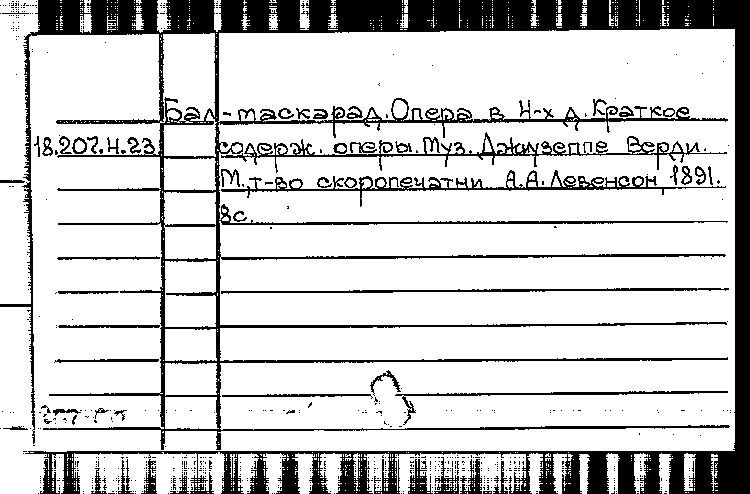 Бал-маскарад. Опера в 4-х д. Краткое
18.207.4.23 содерж. оперы. Муз. Джузеппе Верди.
М., т-во скоропечатни А.А. Левенсон, 1891.
8с.